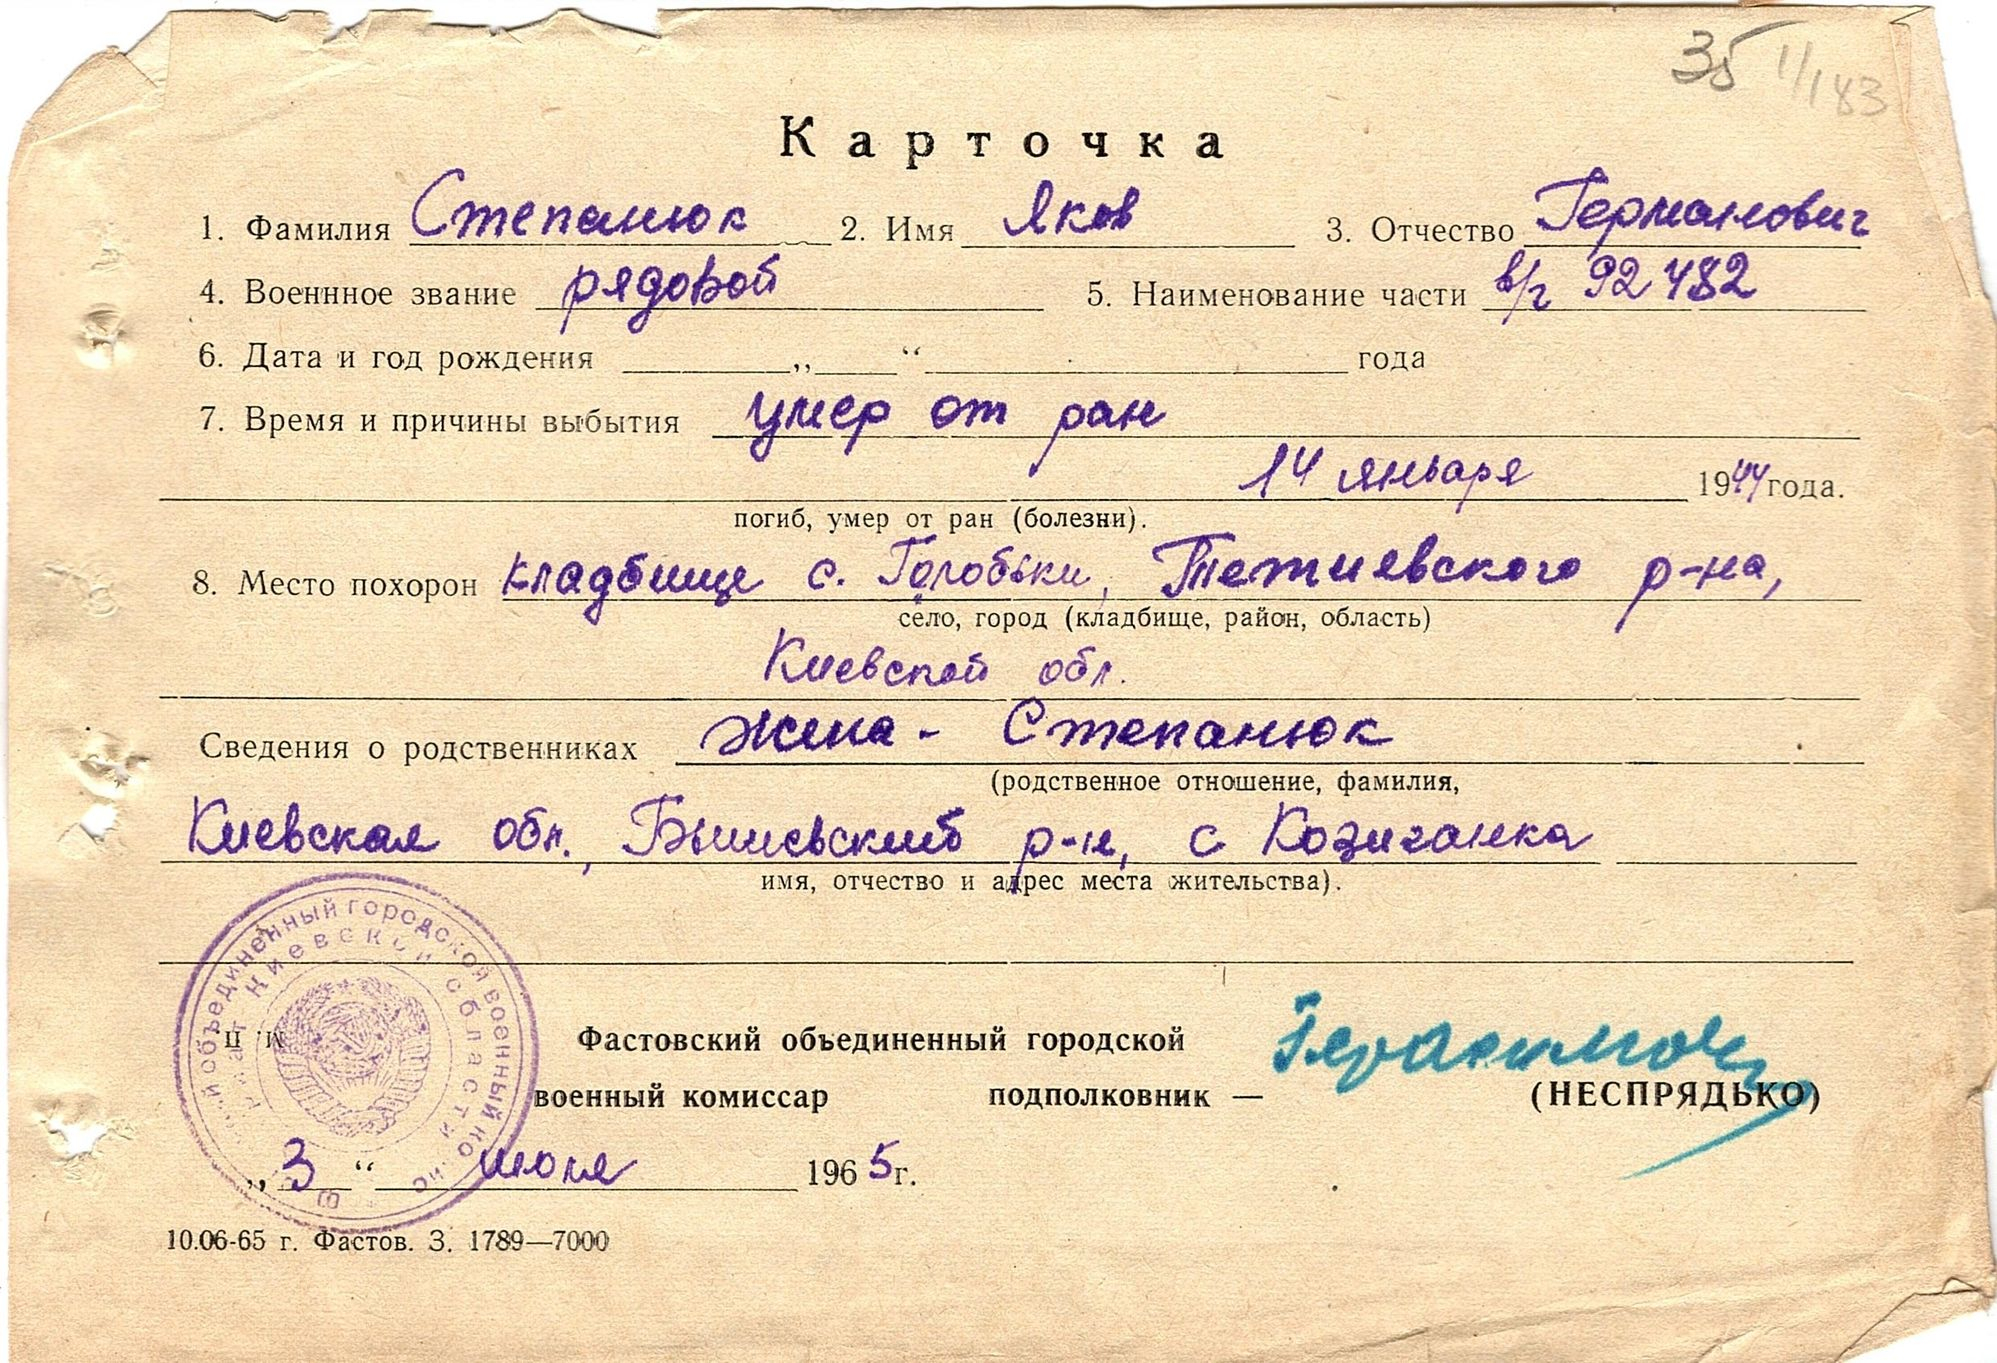 35 1/183
Карточка
1. Фамилия Степанюк 2. Имя Яков 3. Отчество Германович
4. Военнное звание рядовой 5. Наименование части в/ч 92482
6. Дата и год рождения „ “ года
7. Время и причины выбытия умер от ран
14 января 1944 года.
погиб, умер от ран (болезни).
8. Место похорон кладбище с. Голобьки, Тетиевского р-на,
село, город (кладбище, район, область)
Киевской обл.
Сведения о родственниках жена - Степанюк
(родственное отношение, фамилия,
Киевская обл., Бышевский р-н, с Козичанка
имя, отчество и адрес места жительства).
объединенный городской военный
Киевской области
Фастовский объединенный городской
военный комиссар подполковник —
(НЕСПРЯДЬКО)
„3“ июля 1965г.
10.06-65 г. Фастов. З. 1789—7000